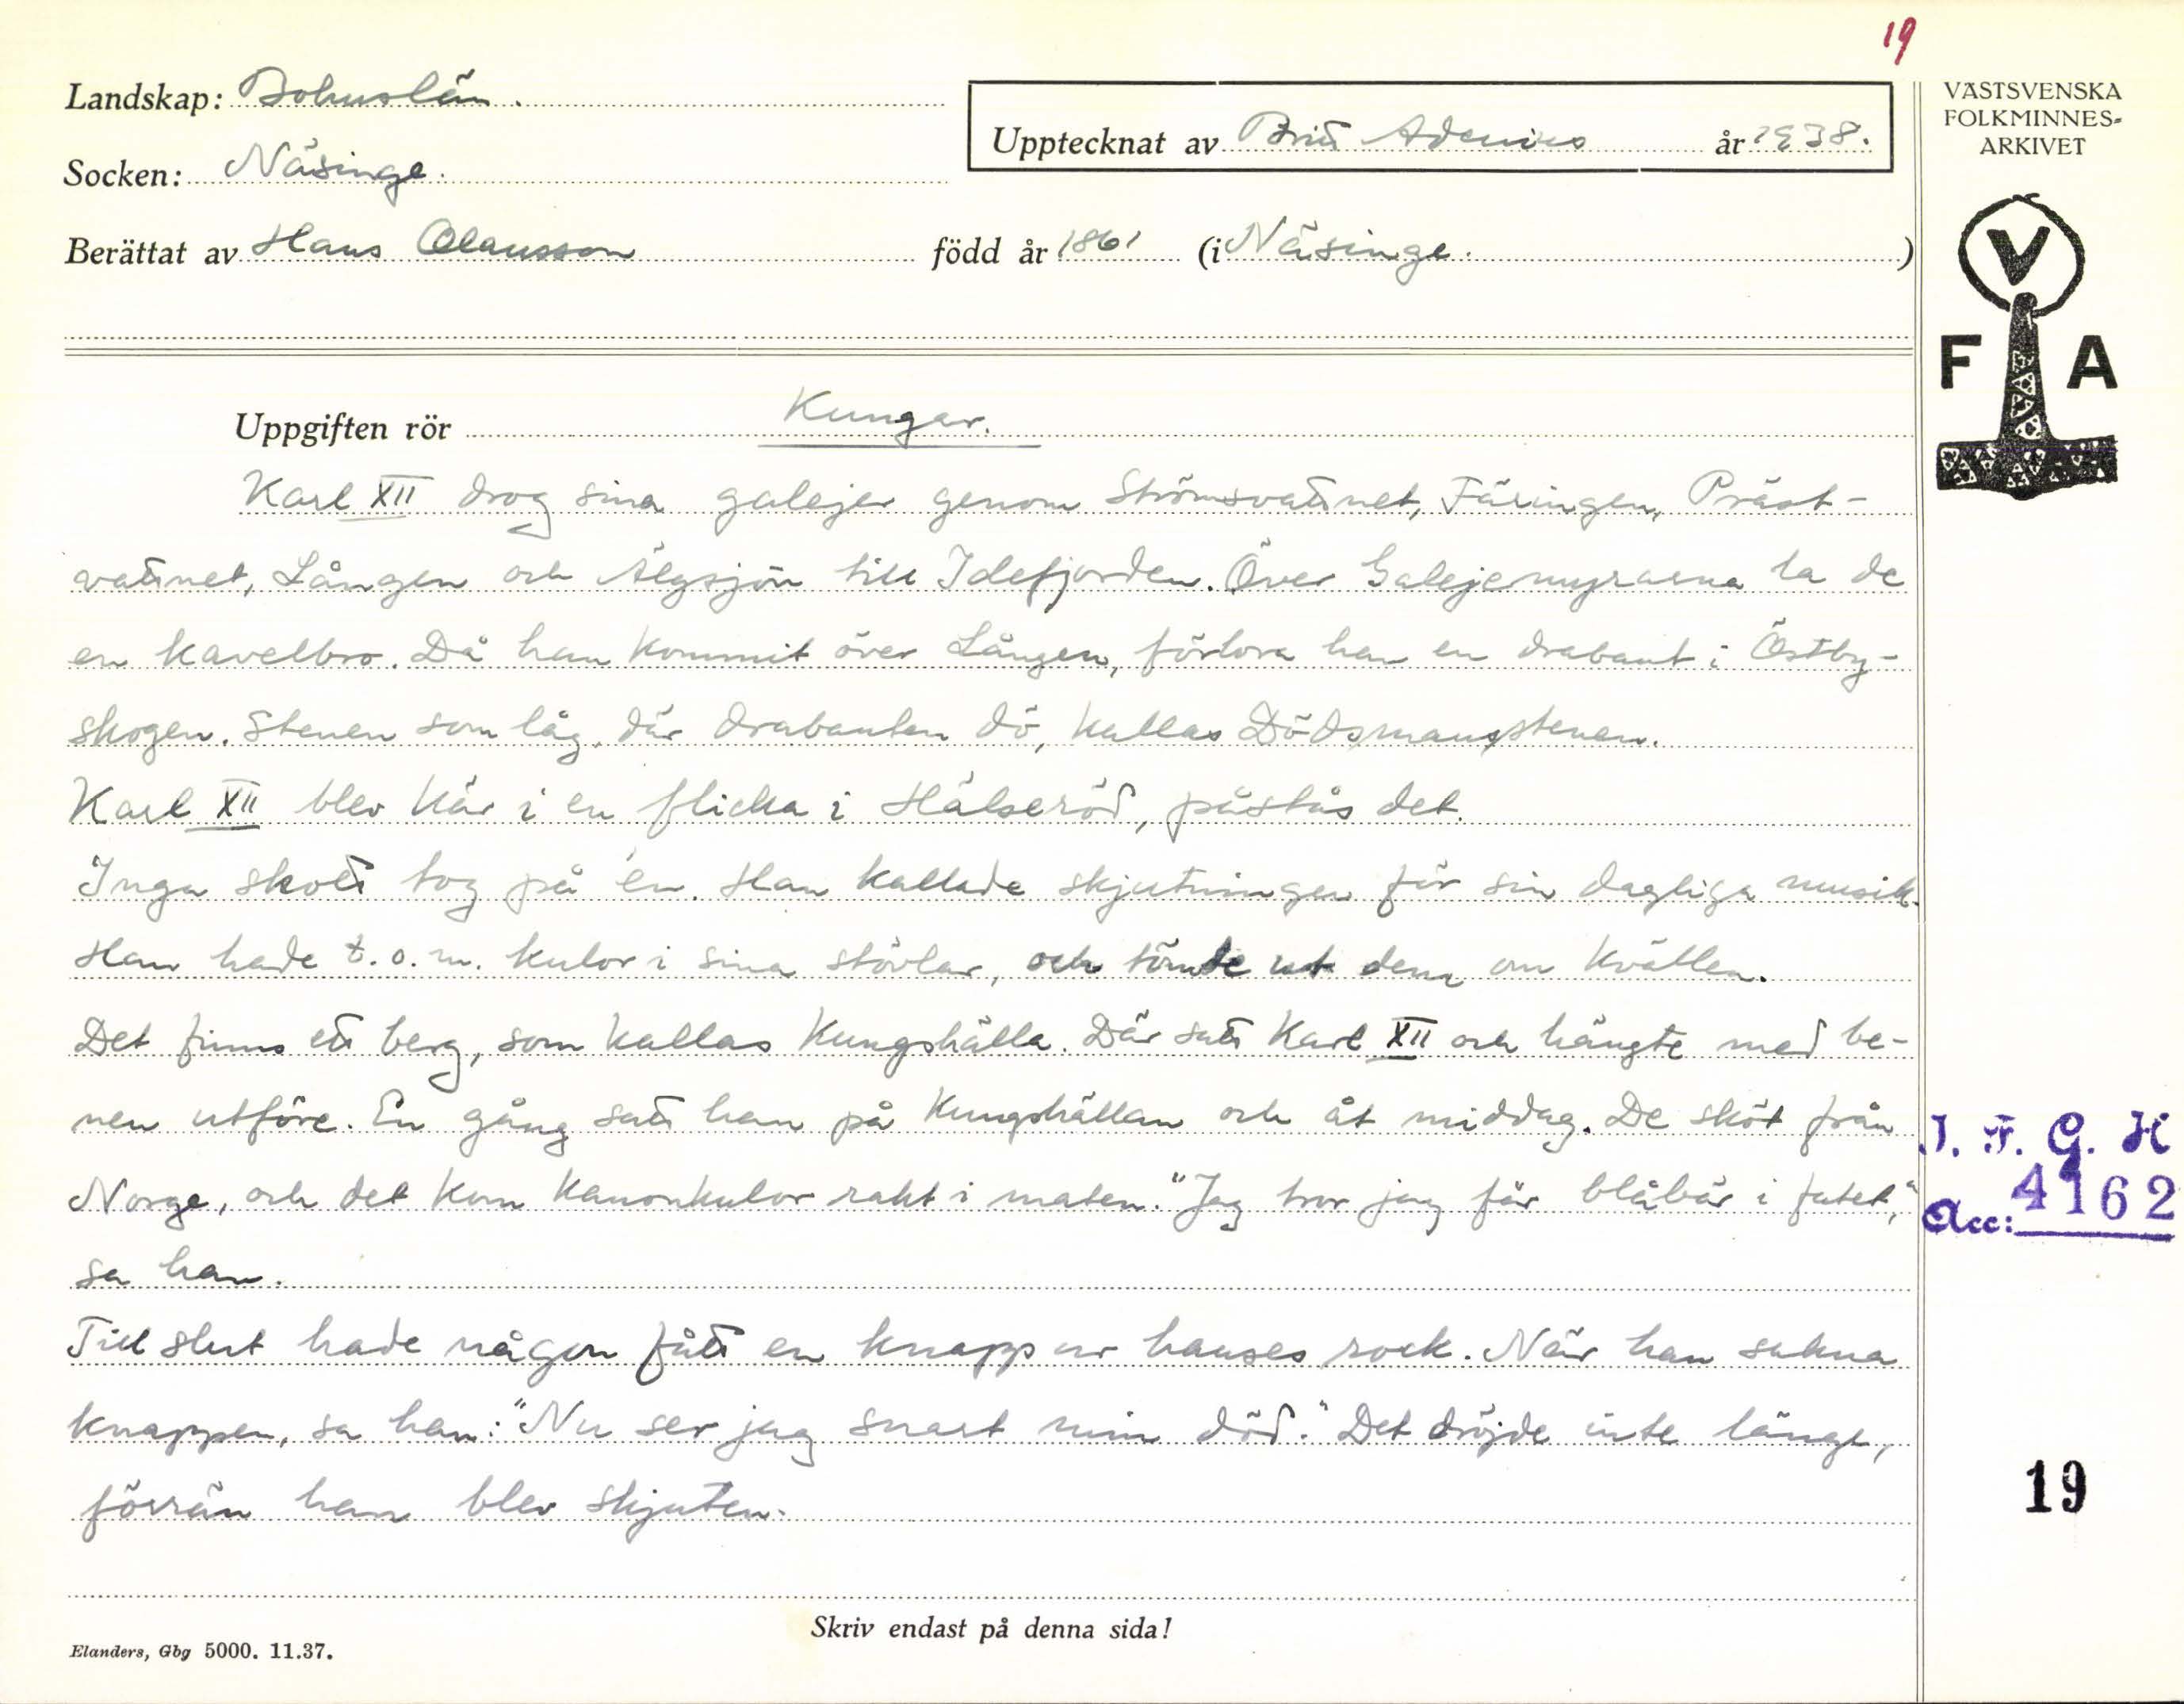 19
Landskap: Bohuslän.
Upptecknat av Britt Adenius år 1938.
Socken: Näsinge.
Berättat av Hans Olausson född år 1861 (i Näsinge.)
VÄSTSVENSKA
FOLKMINNES-
ARKIVET
V
F A
Uppgiften rör Kungar.
Karl XII drog sina galejer genom Strömsvattnet, Färingen, Präst-
vattnet, Lången och Älgsjön till Idefjorden. Över Galejemyrarna la de
en kavelbro. Då han kommit över Lången, förlora han en drabant i Östby-
skogen. Stenen som låg, där drabanten dö, kallas Dödsmansstenen.
Karl XII blev kär i en flicka i Hälseröd, påstås det.
Inga skott tog på 'en. Han kallade skjutningen för sin dagliga musik.
Han hade t.o.m. kulor i sina stövlar, och tömde ut dem om kvällen.
Det finns ett berg, som kallas Kungshälla. Där satt Karl XII och hängte med be-
nen utföre. En gång satt han på Kungshällan och åt middag. De sköt från
Norge, och det kom kanonkulor rakt i maten. "Jag tror jag får blåbär i fatet,"
sa han.
Till slut hade någon fått en knapp ur hanses rock. När han sakna
knappen, sa han: "Nu ser jag snart min död." Det dröjde inte länge,
förrän han blev skjuten.
I. F. G. H
Acc: 4162
19
Skriv endast på denna sida!
Elanders, Gbg 5000. 11.37.